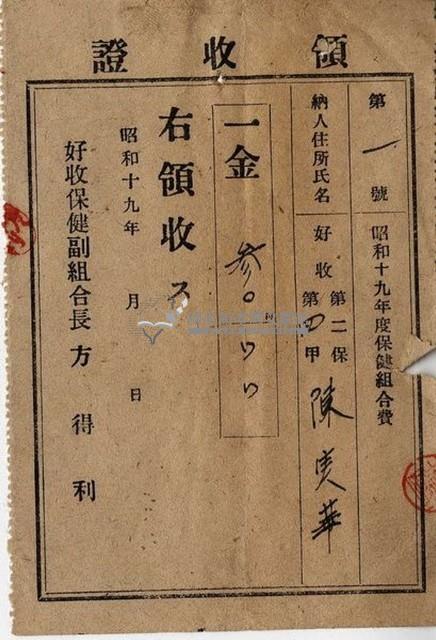 領收證
第一號 昭和十九年度保健組合費
納人住所氏名 好收 第二保 第四甲 陳実華
一金 参〇
右領收ス
昭和十九年 月 日
好收保健副組合長 方得利